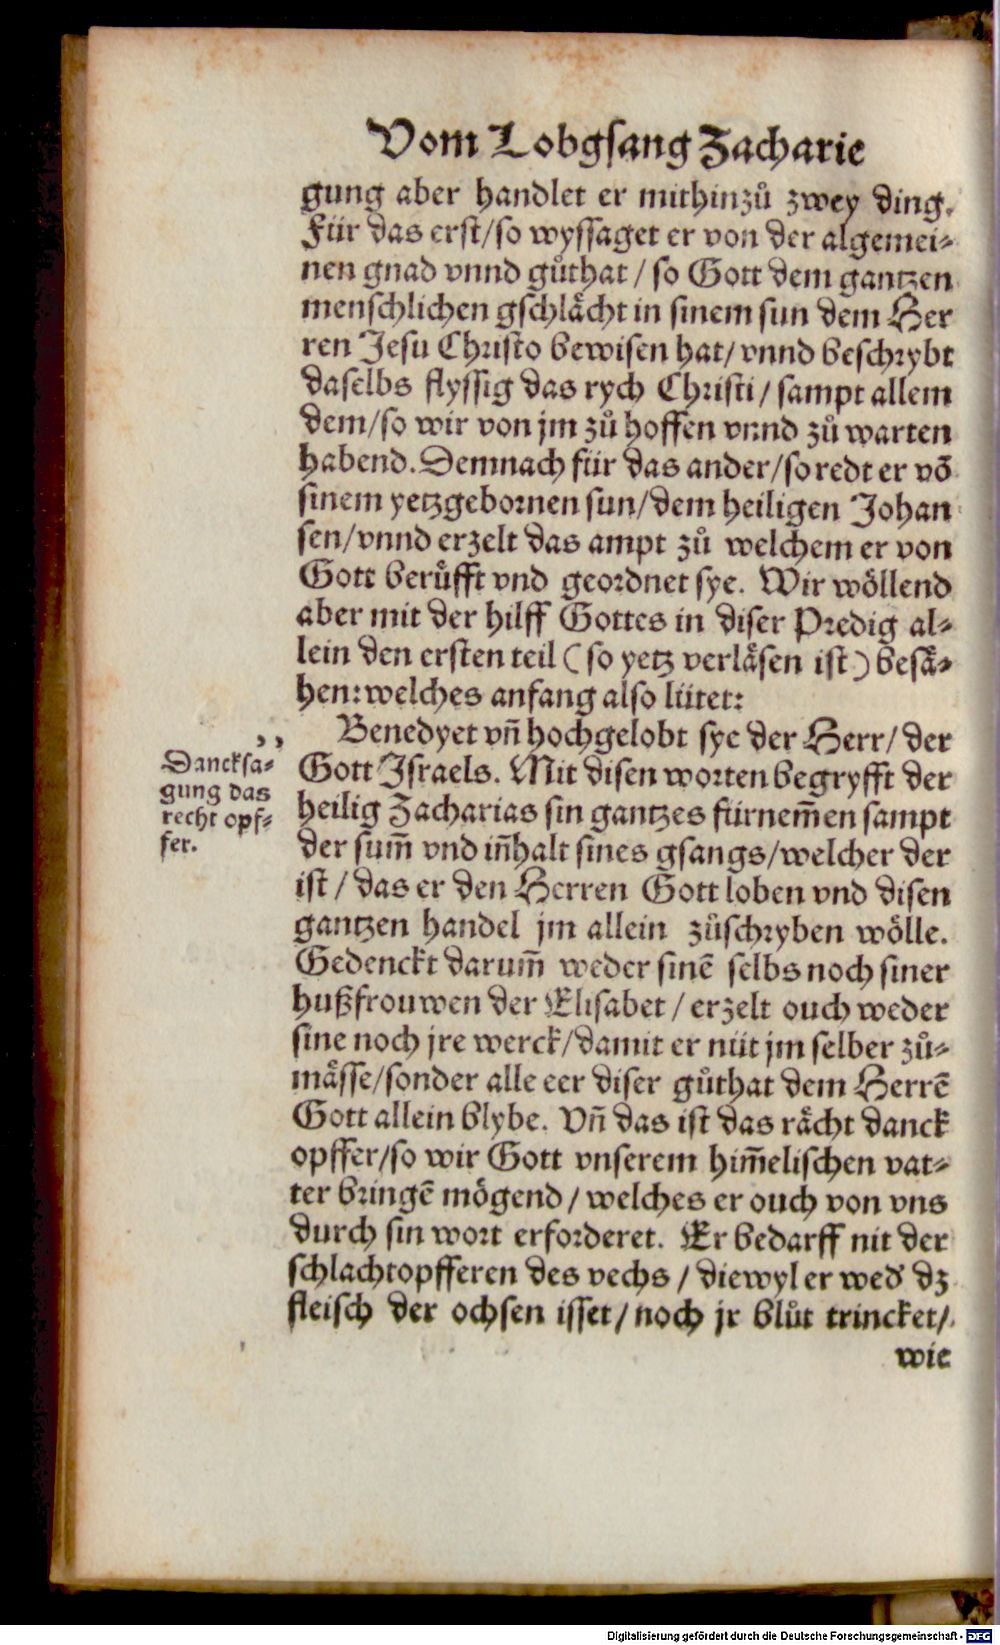 Vom Lobgsang Zacharie
gung aber handlet er mithinzů zwey ding.
Für das erst/so wyssaget er von der algemei-
nen gnad vnnd gůthat / so Gott dem gantzen
menschlichen gschlächt in sinem sun dem Her
ren Jesu Christo bewisen hat/ vnnd beschrybt
daselbs flyssig das rych Christi / sampt allem
dem/so wir von jm zů hoffen vnnd zů warten
habend. Demnach für das ander/so redt er võ
sinem yetzgebornen sun/dem heiligen Johan
sen/vnnd erzelt das ampt zů welchem er von
Gott berüfft vnd geordnet sye. Wir wöllend
aber mit der hilff Gottes in diser Predig al-
lein den ersten teil (so yetz verläsen ist) besä-
hen: welches anfang also lütet:
Benedyet vñ hochgelobt sye der Herr/ der
Gott Israels. Mit disen worten begryfft der
heilig Zacharias sin gantzes fürnem̃en sampt
der sum̃ vnd iñhalt sines gsangs/welcher der
ist / das er den Herren Gott loben vnd disen
gantzen handel jm allein zůschryben wölle.
Gedenckt darum̃ weder sinẽ selbs noch siner
hußfrouwen der Elisabet / erzelt ouch weder
sine noch jre werck/damit er nüt jm selber zů-
mässe/sonder alle eer diser gůthat dem Herrẽ
Gott allein blybe. Vñ das ist das rächt danck
opffer/so wir Gott vnserem him̃elischen vat-
ter bringẽ mögend / welches er ouch von vns
durch sin wort erforderet. Er bedarff nit der
schlachtopfferen des vechs / diewyl er wed' dz
fleisch der ochsen isset / noch jr blůt trincket/
wie
,,
Dancksa-
gung das
recht opf-
fer.
Digitalisierung gefördert durch die Deutsche Forschungsgemeinschaft - DFG